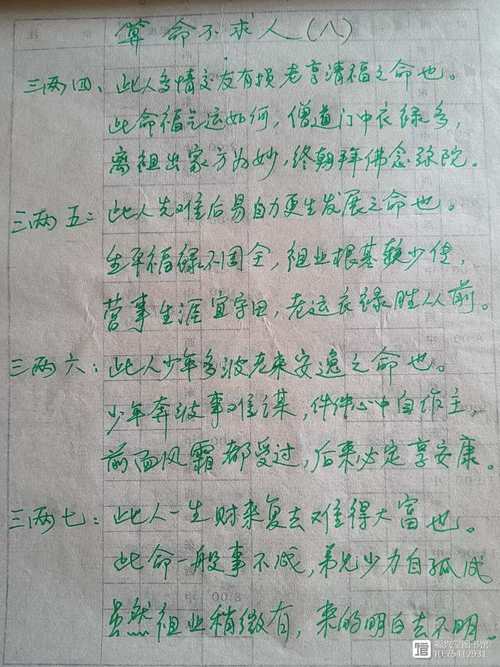 算命不求人(八)
三两四、此人多情交友有损老享清福之命也。
此命福气运如何，僧道门中衣禄多，
离祖出家方为妙，终朝拜佛念弥陀。
三两五：此人先难后易自力更生发展之命也。
生平福禄不周全，祖业根基觉少传，
营事生涯宜守旧，老运衣禄胜从前。
三两六：此人少年多波老来安逸之命也。
少年奔波事难谋，件件心中自作主，
前面风霜都受过，后来必定享安康。
三两七：此人一生财来复去难得大富也。
此命一般事不成，弟兄少力自孤成
虽然祖业稍微有，来的明白去不明